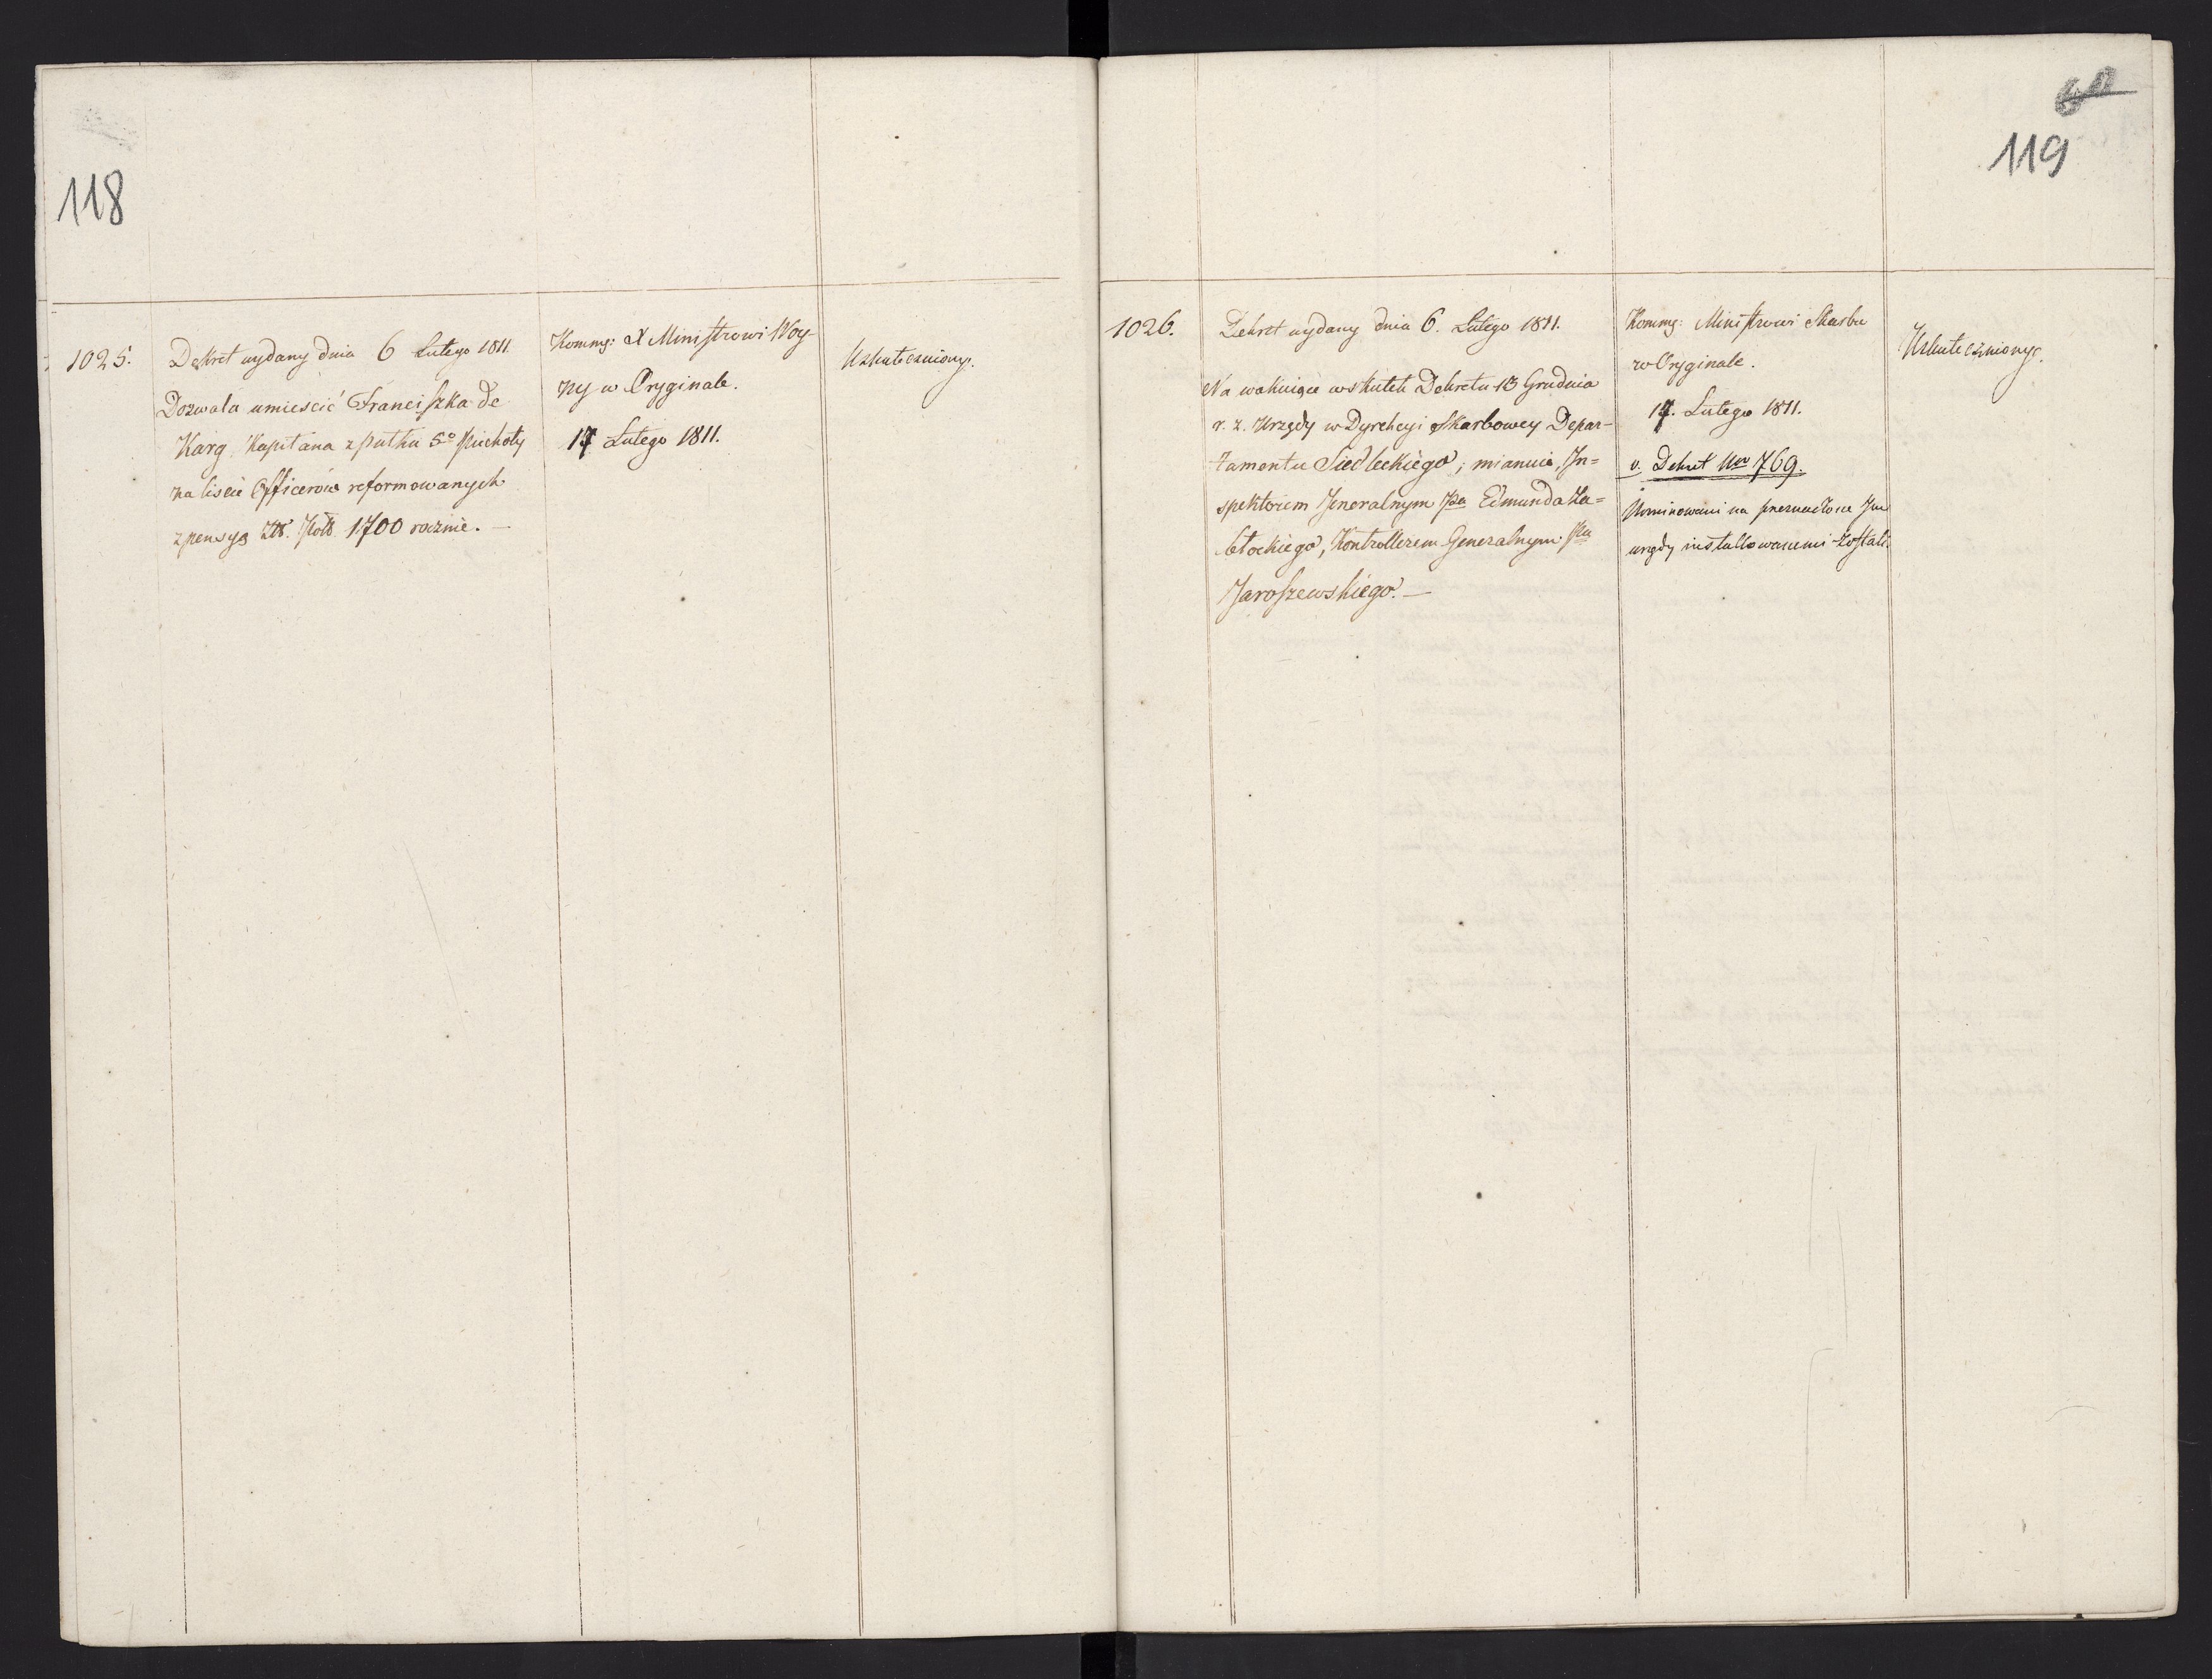 118
1025.
Dekret wydany dnia 6 Lutego 1811.
Dozwala umiescić Franciszka de
Karg Kapitana z pułku 5º Piechoty
na liscie Officerów reformowanych
z pensyą Zł. Pol. 1700 rocznie. —
Kommg: X Ministrowi Woy-
ny w Oryginale.
17 Lutego 1811.
Uskuteczniony.
60
119
1026.
Dekret wydany dnia 6. Lutego 1811.
Na wakuiące w skutek Dekretu 13 Grudnia
r. z. Urzędy w Dyrekcyi Skarbowey Depar-
tamentu Siedleckiego, mianuie, In=
spektorem Jeneralnym Pa Edmunda Za=
błockiego, Kontrollerem Generalnym Pa
Jaroszewskiego. —
Kommg: Ministrowi Skarbu
w Oryginale.
17. Lutego 1811.
v. Dekret Nro 769.
Nominowani na przeznaczone Im
urzędy installowanemi zostali.
Uskuteczniony.